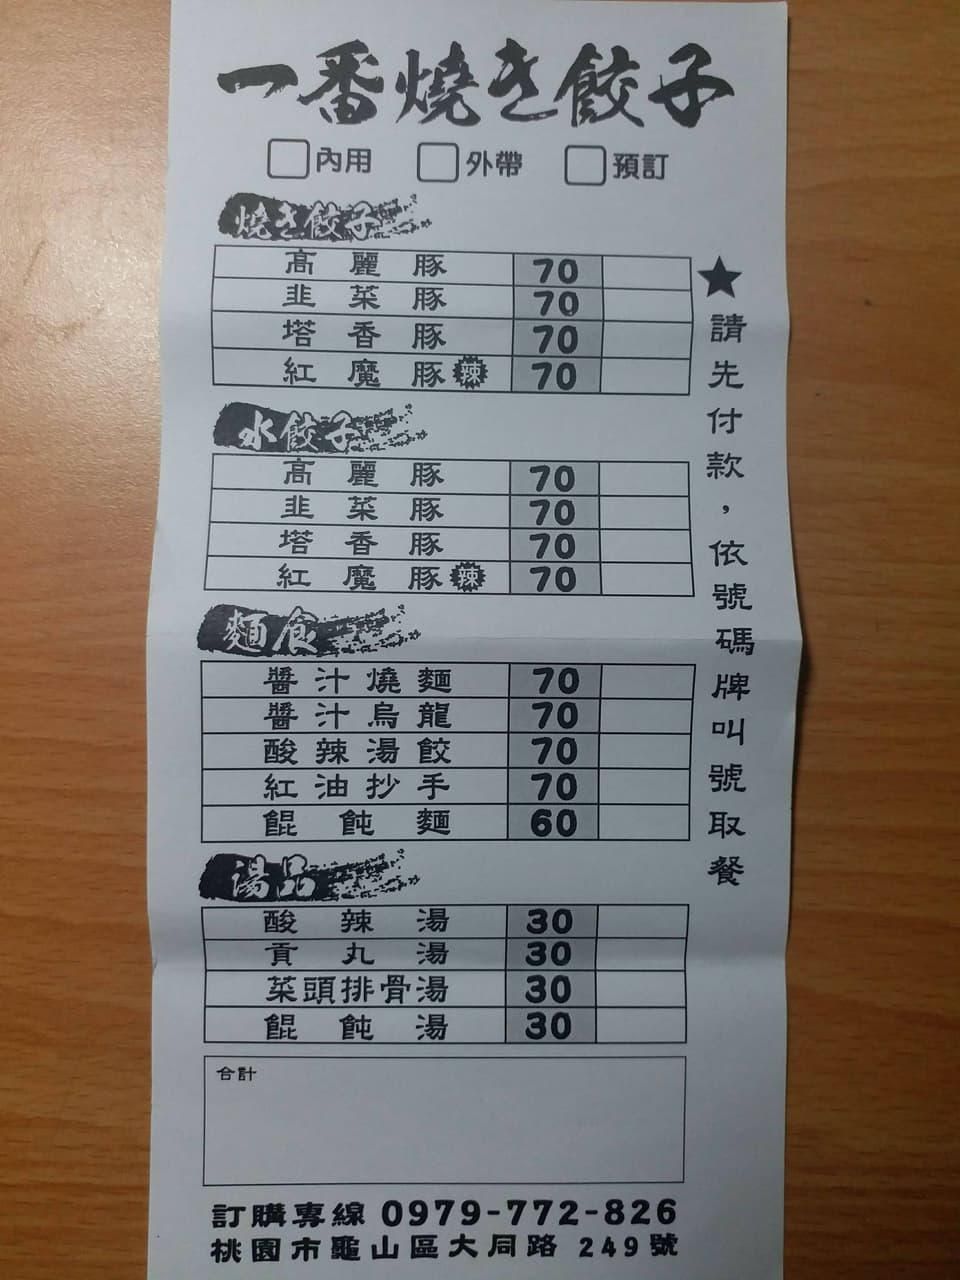 一番燒き餃子
內用 外帶 預訂
燒き餃子
高麗豚 70
韭菜豚 70
塔香豚 70
紅魔豚 辣 70
水餃子
高麗豚 70
韭菜豚 70
塔香豚 70
紅魔豚 辣 70
麵食
醬汁燒麵 70
醬汁烏龍 70
酸辣湯餃 70
紅油抄手 70
餛飩麵 60
湯品
酸辣湯 30
貢丸湯 30
菜頭排骨湯 30
餛飩湯 30
合計
★請先付款，依號碼牌叫號取餐
訂購專線 0979-772-826
桃園市龜山區大同路 249號